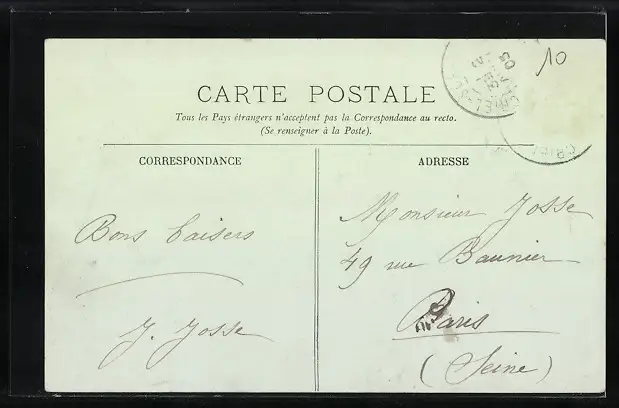 10
CARTE POSTALE
Tous les Pays étrangers n'acceptent pas la Correspondance au recto.
(Se renseigner à la Poste).
CORRESPONDANCE
ADRESSE
Bons baisers
J. Josse
Monsieur Josse
49 rue Beaunier
Paris
(Seine)